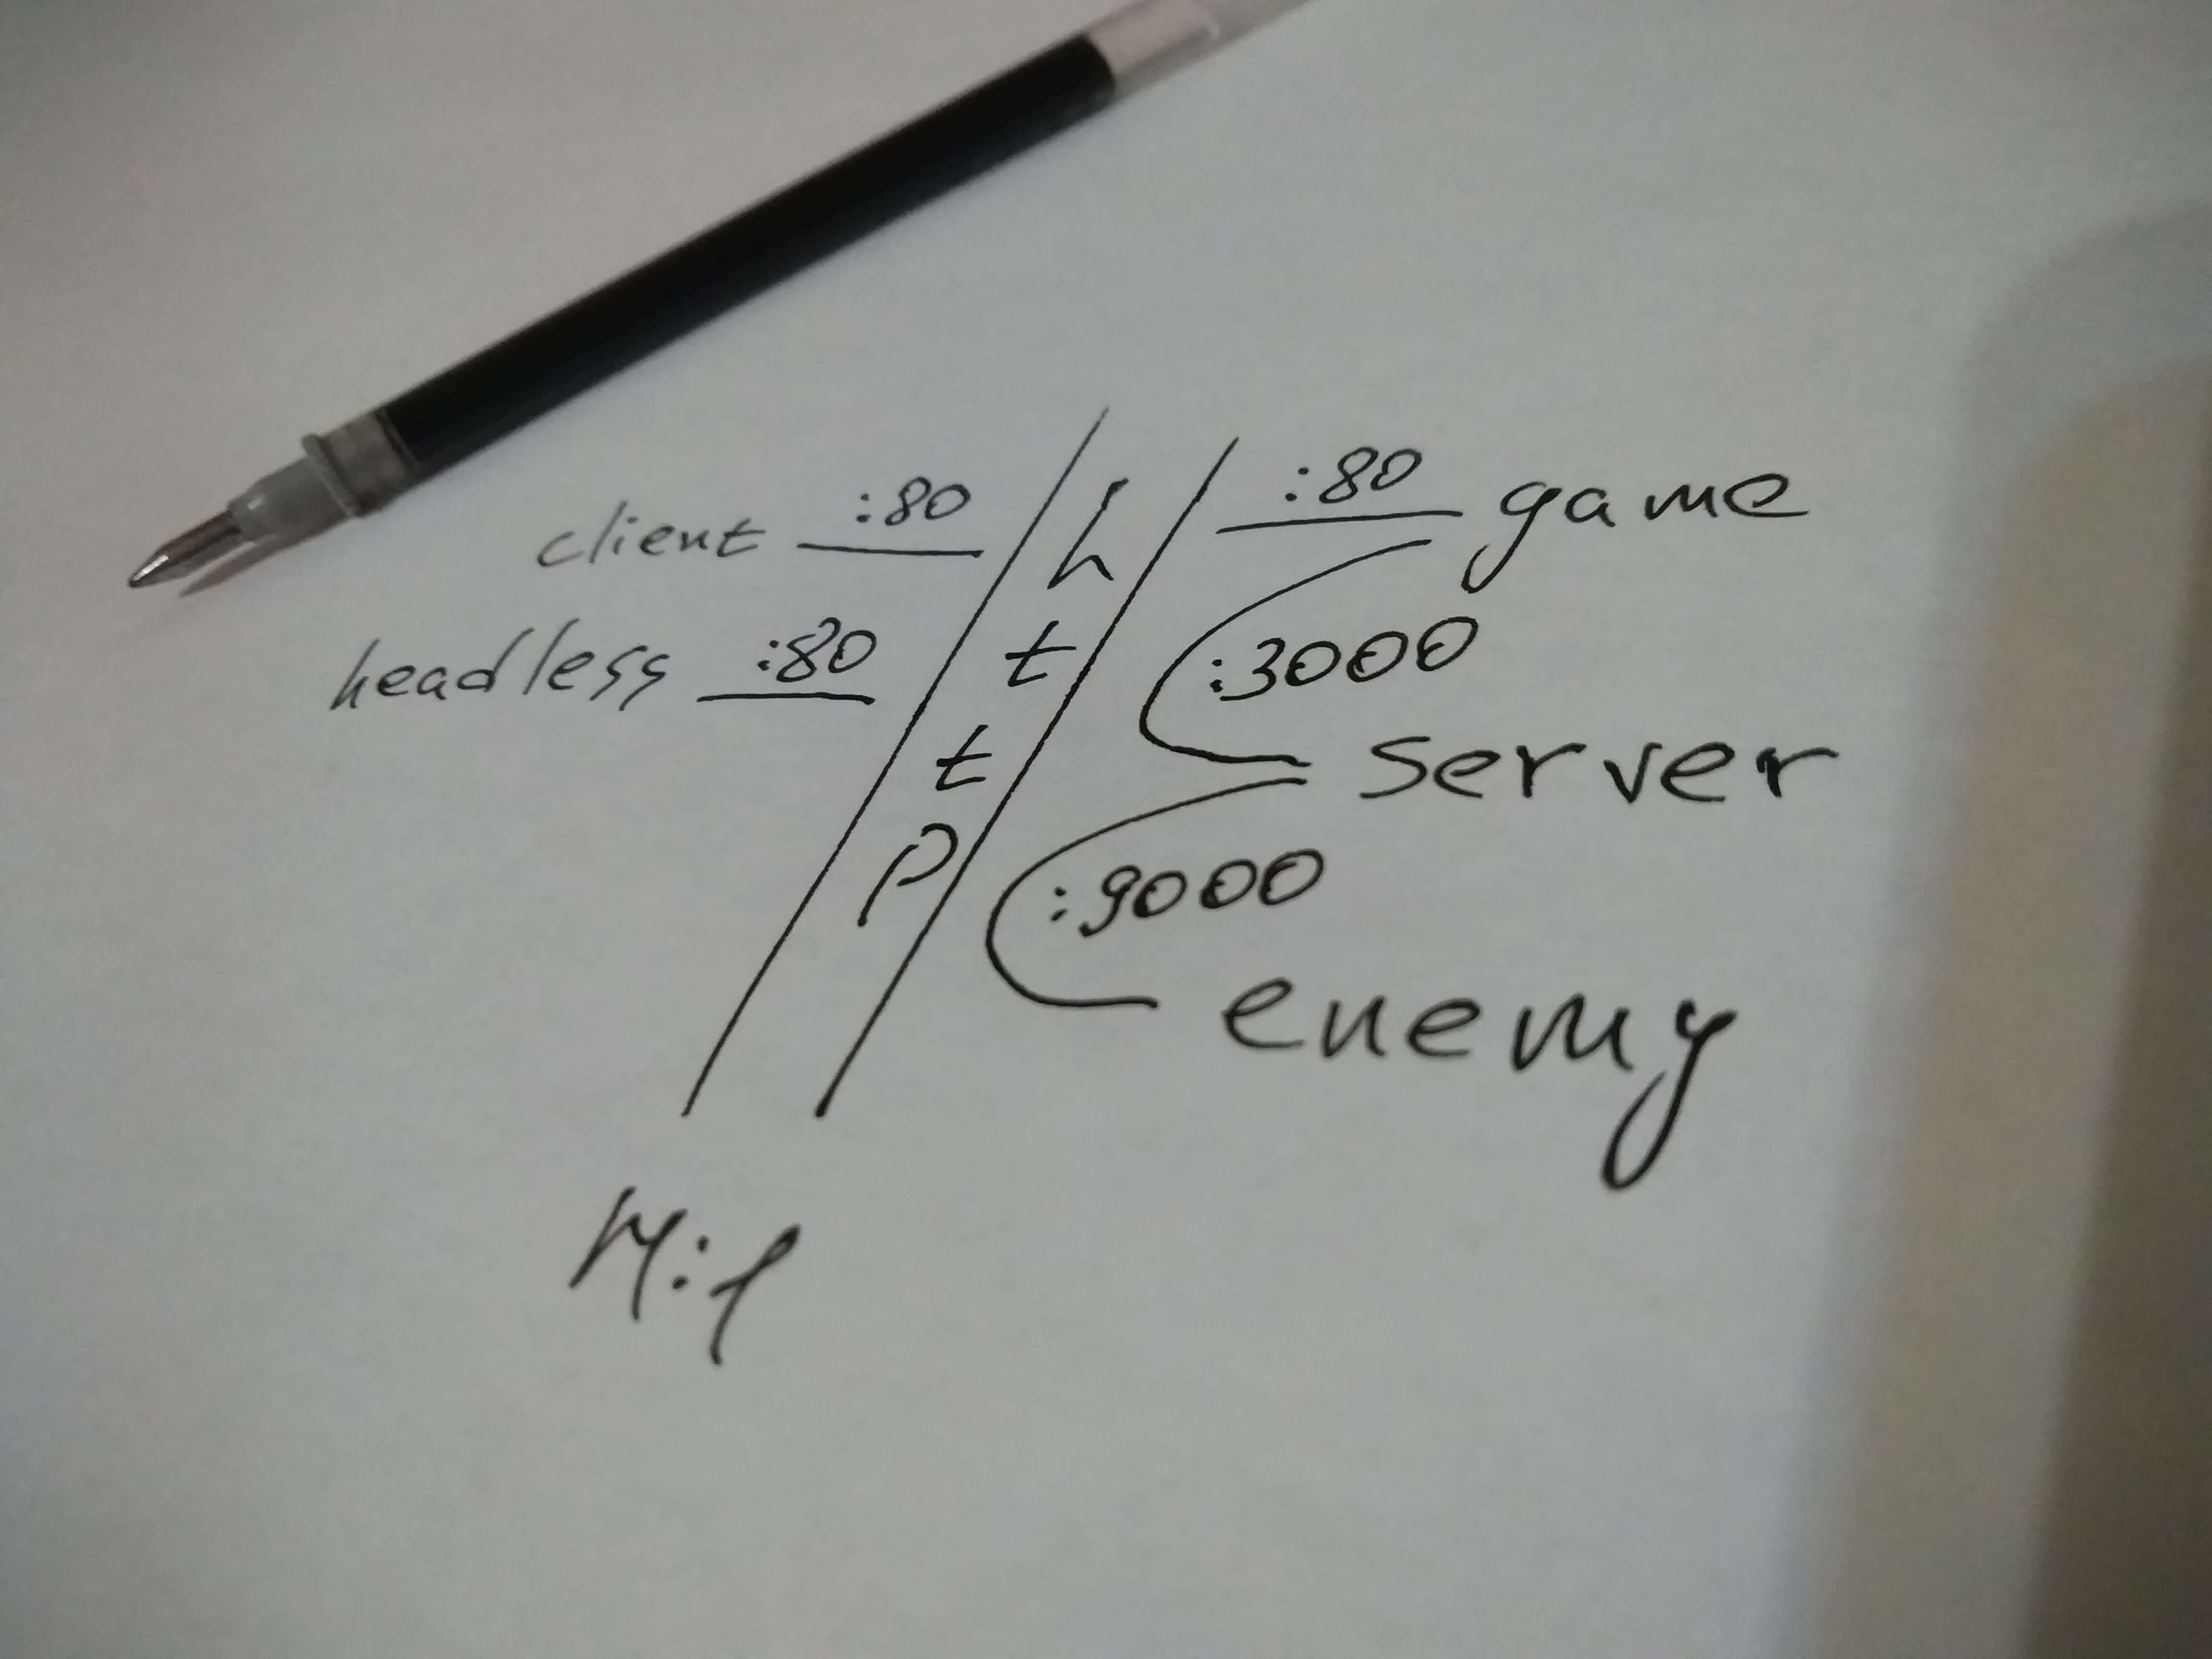 client :80
headless :80
http
:80 game
:3000
server
:9000
enemy